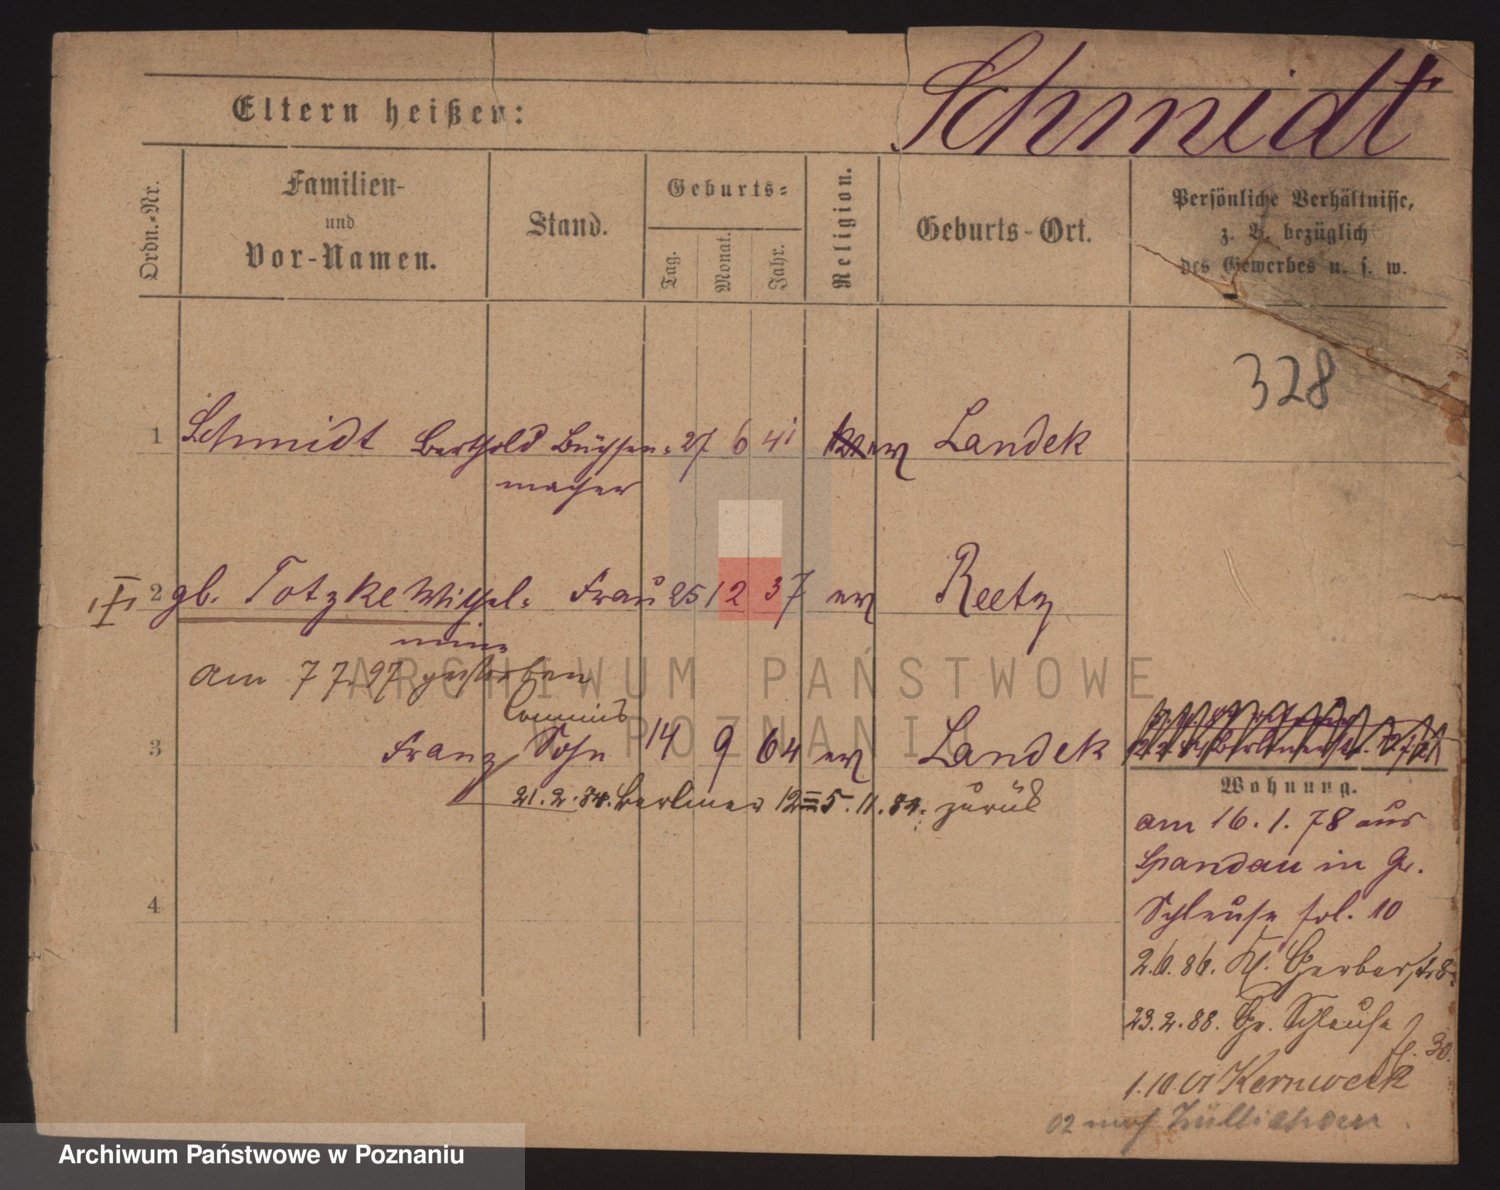 Schmidt
Eltern heißen:
Ordn.-Nr.
Familien-
und
Vor-Namen.
Stand.
Geburts-
Tag.
Monat.
Jahr.
Religion.
Geburts-Ort.
Persönliche Verhältnisse,
z. B. bezüglich
des Gewerbes u. s. w.
328
1 Schmidt Berthold Büchsen- 27 6 41 ev Landek
macher
2 gb. Totzke Wilhel- Frau 25 12 37 ev Reetz
mine
am 7 7. 97 gestorben
Commis
3 Franz Sohn 14 9 64 ev Landek
21. 2. 84. Berliner 12 5. 11. 84. zurück
Wohnung.
am 16. 1. 78 aus
Spandau in Gr.
Schleuse fol. 10
4
2.6.86. Kl. Gerberstr 8.
23.2.88. Gr. Schleuse
fl. 30.
1.10.01 Kernwerk
02 nach Züllichau
ARCHIWUM PAŃSTWOWE
W POZNANIU
Archiwum Państwowe w Poznaniu